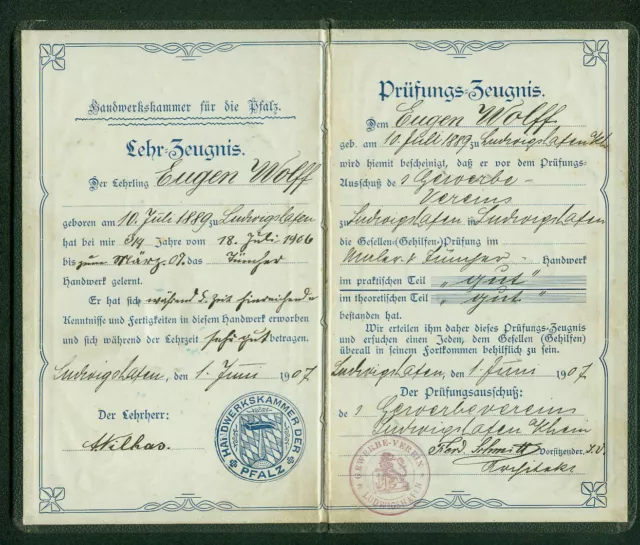 Handwerkskammer für die Pfalz.
Lehr-Zeugnis.
Der Lehrling Eugen Wolff
geboren am 10. Juli 1889 zu Ludwigshafen
hat bei mir 3/4 Jahre vom 18. Juli 1906
bis zum März. 07. das Tüncher
Handwerk gelernt.
Er hat sich während d. Zeit hinreichende
Kenntnisse und Fertigkeiten in diesem Handwerk erworben
und sich während der Lehrzeit sehr gut betragen.
Ludwigshafen, den 1. Juni 1907
Der Lehrherr:
HANDWERKSKAMMER DER PFALZ
Prüfungs-Zeugnis.
Dem Eugen Wolff
geb. am 10. Juli 1889 zu Ludwigshafen
wird hiemit bescheinigt, daß er vor dem Prüfungs-
Ausschuß des Gewerbe-
Vereins
zu Ludwigshafen in Ludwigshafen
die Gesellen-(Gehilfen-)Prüfung im
Maler & Tüncher- Handwerk
im praktischen Teil „gut"
im theoretischen Teil „gut"
bestanden hat.
Wir erteilen ihm daher dieses Prüfungs-Zeugnis
und ersuchen einen Jeden, dem Gesellen (Gehilfen)
überall in seinem Fortkommen behilflich zu sein.
Ludwigshafen, den 1. Juni 1907
Der Prüfungsausschuß:
des Gewerbevereins
Ludwigshafen Rhein
Ferd. Schmitt Vorsitzender.
Architekt
GEWERBE-VEREIN LUDWIGSHAFEN